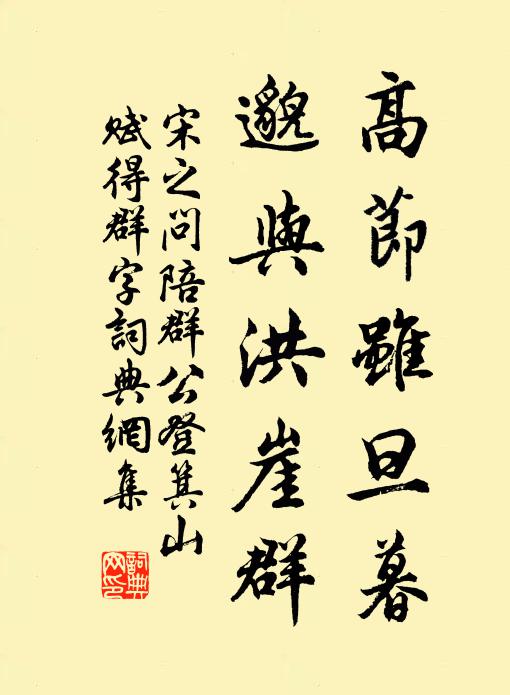 高節雖旦暮
邈與洪崖群
宋之问陪群公登箕山
赋得群字詞典網集
詞典
网印